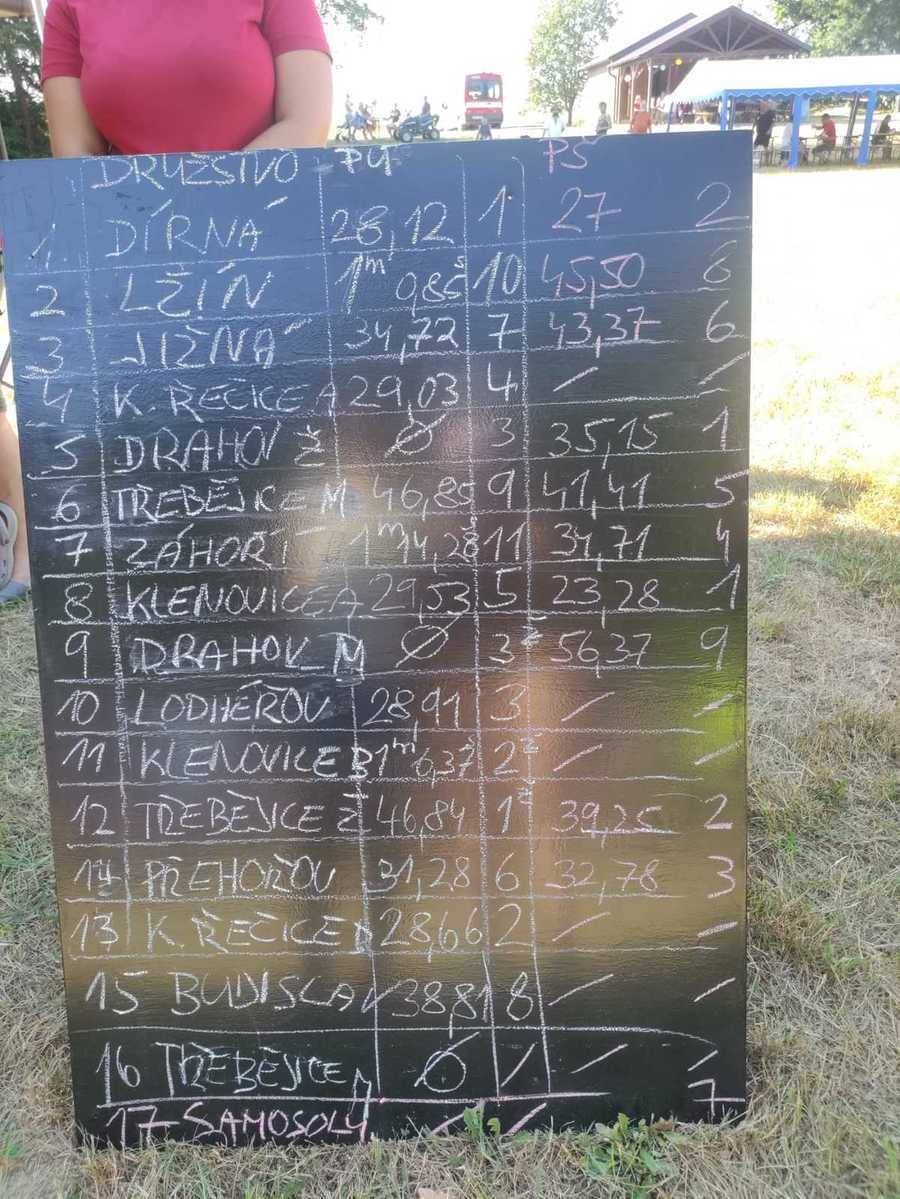 DRUŽSTVO PÚ PS
1. DÍRNÁ 28,12 1 27 2
2 LŽÍN 1m 0,85s 10 45,50 8
3 JIŽNÁ 34,72 7 43,37 6
4 K. ŘEČICE A 29,03 4 / /
5 DRAHOV Ž Ø 3 35,15 1
6 TŘEBĚJICE M 46,85 9 41,41 5
7 ZÁHOŘÍ 1m 14,28s 11 34,71 4
8 KLENOVICE A 29,53 5 23,28 1
9 DRAHOV M Ø 3ž 56,37 9
10 LODHÉŘOV 28,91 3 / /
11 KLENOVICE B 1m 6,37 2ž / /
12 TŘEBĚJICE Ž 46,84 1ž 39,25 2
14 PŘEHOŘOV 31,28 6 32,78 3
13 K. ŘEČICE 28,66 2 / /
15 BUDISLAV 38,81 8 / /
16 TŘEBĚJICE Ø / / /
17 SAMOSOLY / / 7